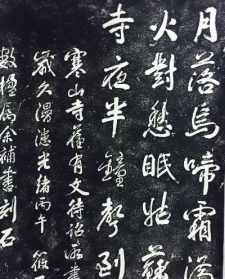 月落烏啼霜滿
火對愁眠姑蘇
寺夜半鐘聲到
寒山寺舊有文待詔所書
歲久漫漶光緒丙午筱
數楹屬余補書刻石